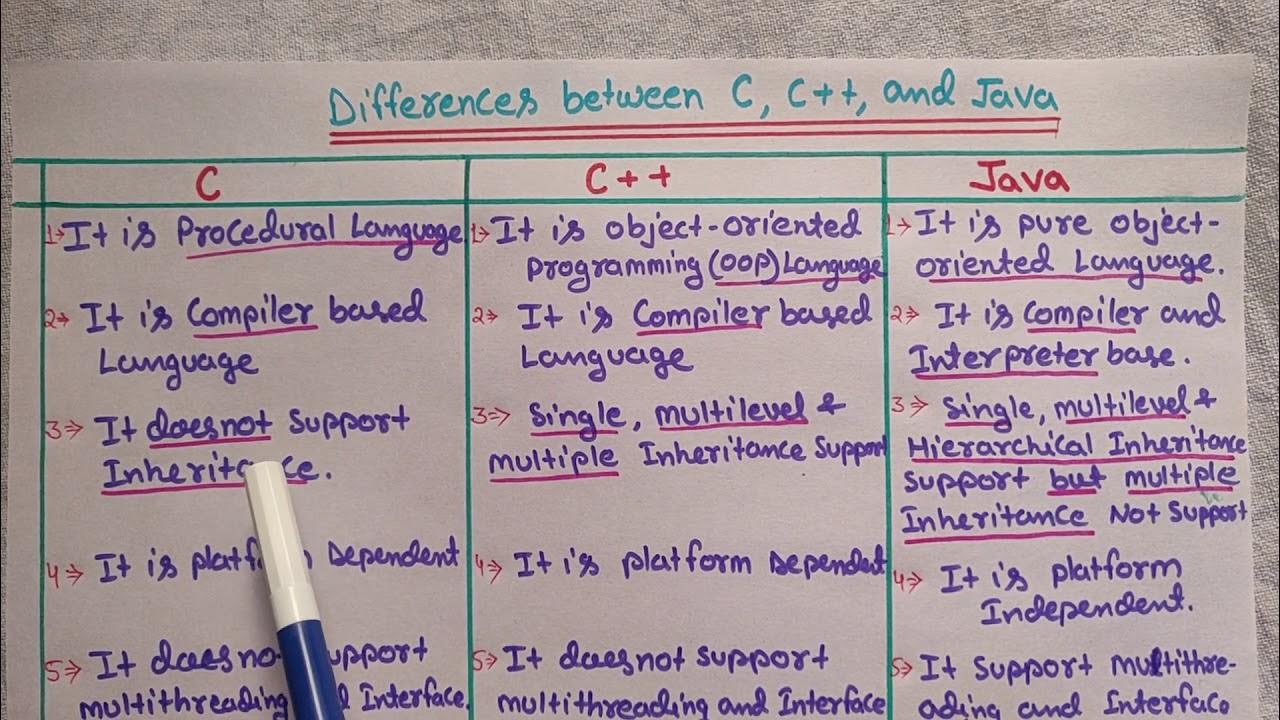 Differences between C, C++, and Java
C
1→ It is Procedural Language
2→ It is Compiler based
Language
3⇒ It doesnot Support
Inheritance.
4⇒ It is Dependent
5⇒ It doesnot
multithreading Interface.
C++
1→ It is object-oriented
Programming (OOP) Language
2⇒ It is Compiler based
Language
3⇒ Single, multilevel &
multiple Inheritance Support
4⇒ It is platform Dependent
5⇒ It doesnot support
multithreading and Interface
Java
1→ It is pure object-
oriented Language.
2⇒ It is Compiler and
Interpreter base.
3⇒ Single, multilevel &
Hierarchical Inheritance
support but multiple
Inheritance Not Support
4⇒ It is platform
Independent.
5⇒ It Support multithre-
ading and Interface